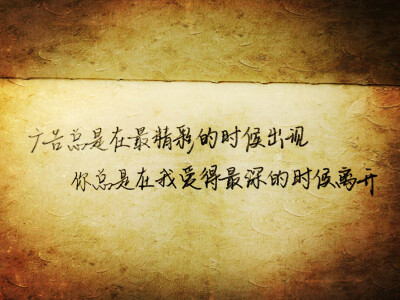 广告总是在最精彩的时候出现
你总是在我爱得最深的时候离开